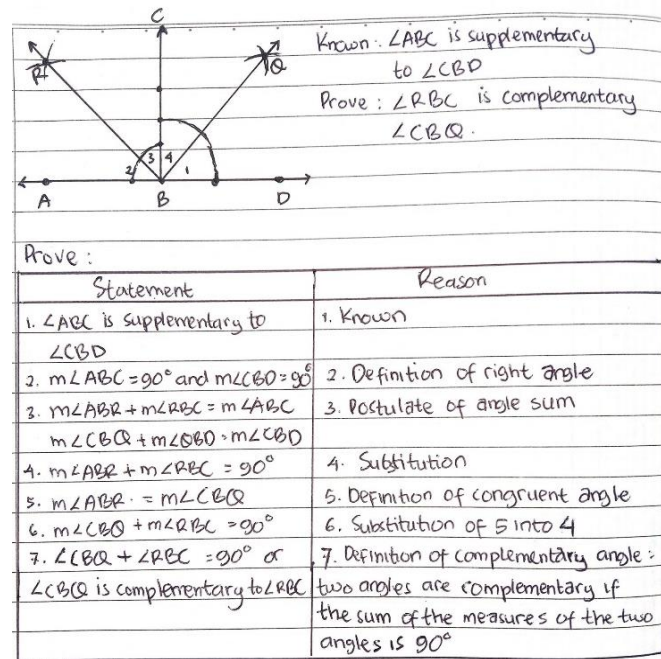 C
R
Q
3 4
2 1
A B D
Known : ∠ABC is supplementary
to ∠CBD
Prove : ∠RBC is complementary
∠CBQ.
Prove :
Statement
Reason
1. ∠ABC is supplementary to
∠CBD
1. Known
2. m∠ABC = 90° and m∠CBD = 90°
2. Definition of right angle
3. m∠ABR + m∠RBC = m∠ABC
m∠CBQ + m∠QBD = m∠CBD
3. Postulate of angle sum
4. m∠ABR + m∠RBC = 90°
4. Substitution
5. m∠ABR = m∠CBQ
5. Definition of congruent angle
6. m∠CBQ + m∠RBC = 90°
6. Substitution of 5 into 4
7. ∠CBQ + ∠RBC = 90° or
∠CBQ is complementary to ∠RBC
7. Definition of complementary angle :
two angles are complementary if
the sum of the measures of the two
angles is 90°